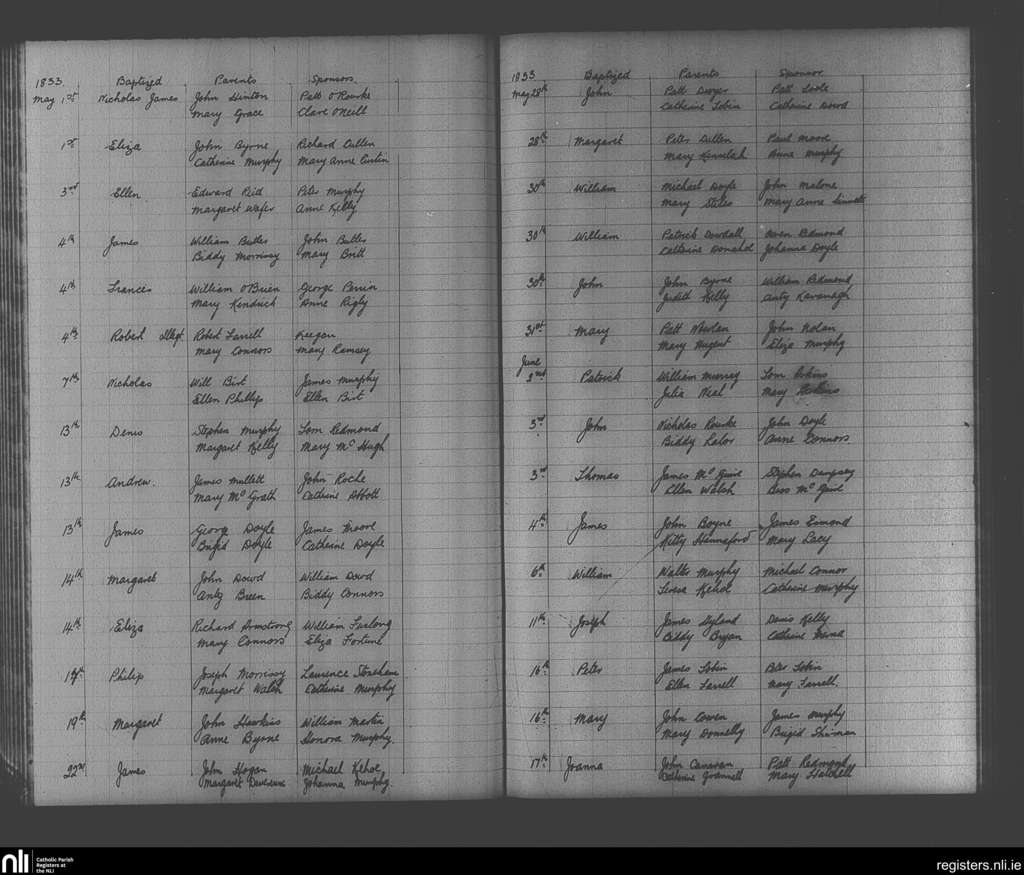 1833 Baptized Parents Sponsors
May 1st Nicholas James John Hinton Patt O'Rourke
Mary Grace Clare O'Neill
1st Eliza John Byrne Richard Cullen
Catherine Murphy Mary Anne Curtin
3rd Ellen Edward Reid Peter Murphy
Margaret Wafer Anne Kelly
4th James William Butler John Butler
Biddy Morrissy Mary Britt
4th Frances William O'Brien George Perrin
Mary Kendrick Anne Rigby
4th Robert Illegt Robert Farrell Keegan
Mary Connors Mary Ramsey
7th Nicholas Will Birt James Murphy
Ellen Phillips Ellen Birt
13th Denis Stephen Murphy Tom Redmond
Margaret Kelly Mary McHugh
13th Andrew. James Mullett John Roche
Mary McGrath Catherine Abbott
13th James George Doyle James Moore
Brigid Doyle Catherine Doyle
14th Margaret John Dowd William Dowd
Anty Breen Biddy Connors
14th Eliza Richard Armstrong William Furlong
Mary Connors Eliza Fortune
17th Philip Joseph Morrissy Laurence
Margaret Walsh Catherine Murphy
19th Margaret John Hawkins William Martin
Anne Byrne Honora Murphy.
22nd James John Hogan Michael Kehoe
Margaret Devereux Johanna Murphy.
1833 Baptized Parents Sponsor
May 28th John Patt Dwyer Patt Toole
Catherine Tobin Catherine Dowd
28th Margaret Peter Cullen Paul Moore
Mary Anne Murphy
30th William Michael Doyle John Malone
Mary Stiles Mary Anne
30th William Patrick Dowdall Owen Redmond
Catherine Johanna Doyle
30th John John Byrne William Redmond
Judith Kelly Anty Kavanagh
31st Mary Patt Nowlan John Nolan
Mary Nugent Eliza Murphy
June
Patrick William Murray Tom
Julia Neal Mary
3rd John Nicholas Rourke John Doyle
Biddy Lalor Anne Connors
3rd Thomas James McGuire Stephen Dempsey
Ellen Walsh Bess McGuire
4th James John Boyne James Esmond
Kitty Hannaford Mary Lacy
6th William Walter Murphy Michael Connor
Teresa Kehoe Catherine Murphy
11th Joseph James Denis Kelly
Biddy Bryan Catherine
16th Peter James Tobin Peter Tobin
Ellen Farrell Mary Farrell.
16th Mary John Cowen James Murphy
Mary Donnelly Brigid
17th Joanna John Canavan Patt Redmond
Catherine Mary Hatchell
nli Catholic Parish
Registers at
the NLI
registers.nli.ie